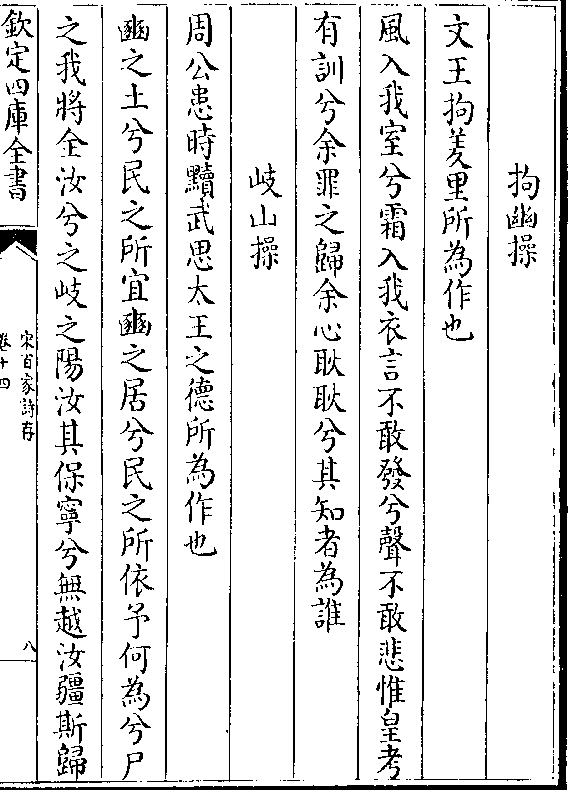 拘幽操
文王拘羑里所為作也
風入我室兮霜入我衣言不敢發兮聲不敢悲惟皇考
有訓兮余罪之歸余心耿耿兮其知者為誰
岐山操
周公患時黷武思太王之德所為作也
豳之土兮民之所宜豳之居兮民之所依予何為兮尸
之我將全汝兮之岐之陽汝其保寧兮無越汝疆斯歸
欽定四庫全書
宋百家詩存
卷十四
八